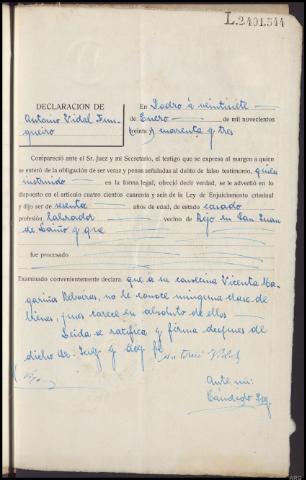 L.2401.544
DECLARACION DE
Antonio Vidal Fun-
gueiro
En Dodro á veintisiete
de Enero de mil novecientos
cuarenta y tres
Compareció ante el Sr. Juez y mi Secretario, el testigo que se expresa al margen a quien
se enteró de la obligación de ser veraz y penas señaladas al delito de falso testimonio, quien
instruido en la forma legal, ofreció decir verdad, se le advertió en lo
dispuesto en el artículo cuatro cientos cuarenta y seis de la Ley de Enjuiciamiento criminal
y dijo ser de sesenta años de edad, de estado casado
profesión labrador vecino de Bejo en San Juan
de Laiño y que
fue procesado
Examinado convenientemente declara: que á su convecina Vicenta Ma-
gariña Tubores, no le conoce ninguna clase de
bienes, pues carece en absoluto de ellos
Leida se ratifica y firma despues de
dicho Sr. Juez y doy fé
Antonio Vidal
Ante mi: